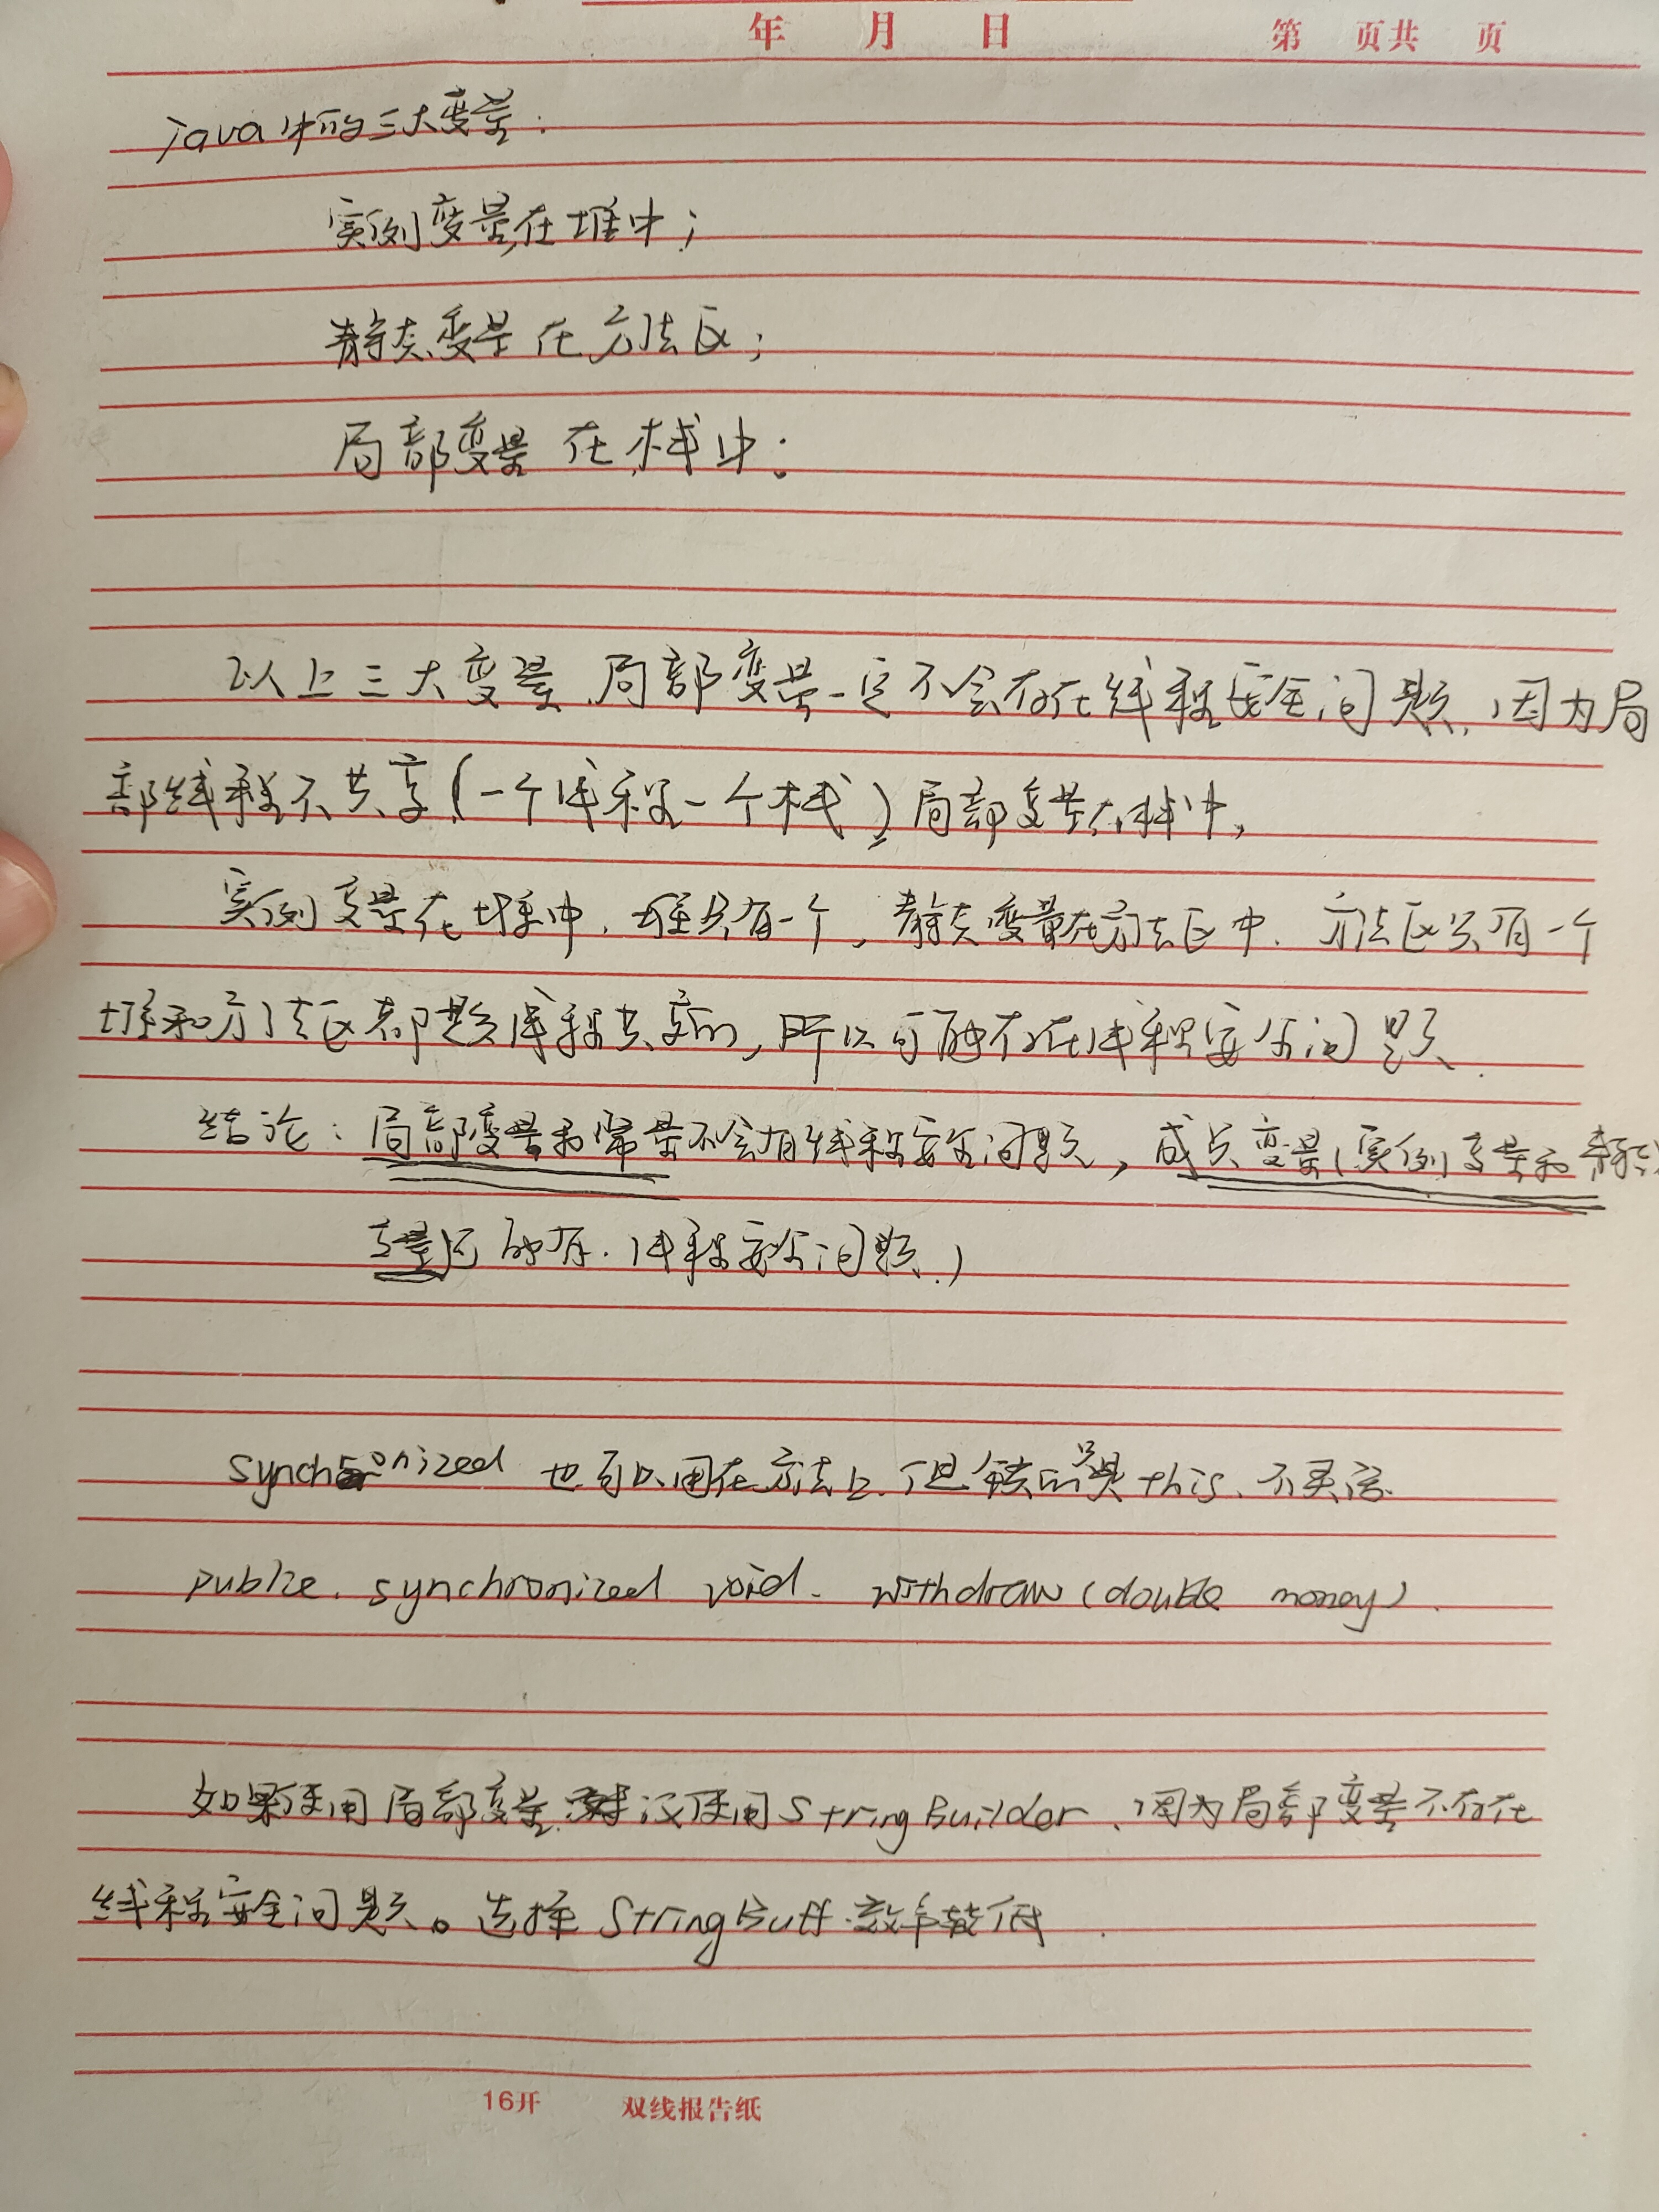 年 月 日 第 页共 页
Java中的三大变量：
实例变量在堆中；
静态变量在方法区；
局部变量在栈中。
以上三大变量，局部变量一定不会存在线程安全问题，因为局
部线程不共享(一个线程一个栈)局部变量在栈中，
实例变量在堆中，堆只有一个，静态变量在方法区中，方法区只有一个
堆和方法区都是线程共享的，所以可能存在线程安全问题．
结论：局部变量和常量不会有线程安全问题，成员变量(实例变量和静态
变量可能有．线程安全问题．)
synchronized 也可以用在方法上，但锁的只是this，不灵活．
public synchronized void withdraw(double money)
如果使用局部变量 建议使用StringBuilder，因为局部变量不存在
线程安全问题。选择 StringBuff 效率较低．
16开 双线报告纸